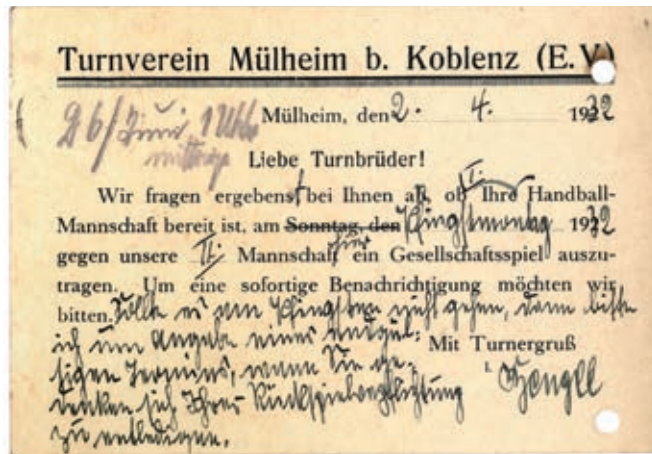 Turnverein Mülheim b. Koblenz (E.V.)
26/Juni 1 Uhr
mittags
Mülheim, den 2. 4. 1932
Liebe Turnbrüder!
I.
Wir fragen ergebenst bei Ihnen an, ob Ihre Handball-
Mannschaft bereit ist, am Sonntag, den Pfingstmontag 1932
hier
gegen unsere II. Mannschaft ein Gesellschaftsspiel auszu-
tragen. Um eine sofortige Benachrichtigung möchten wir
bitten. Sollte es am Pfingsten nicht gehen, dann bitte
ich um Angabe eines endgül-
tigen Termins, wann Sie ge-
Mit Turnergruß
denken sich Ihrer Rückspielverpflichtung
zu entledigen.